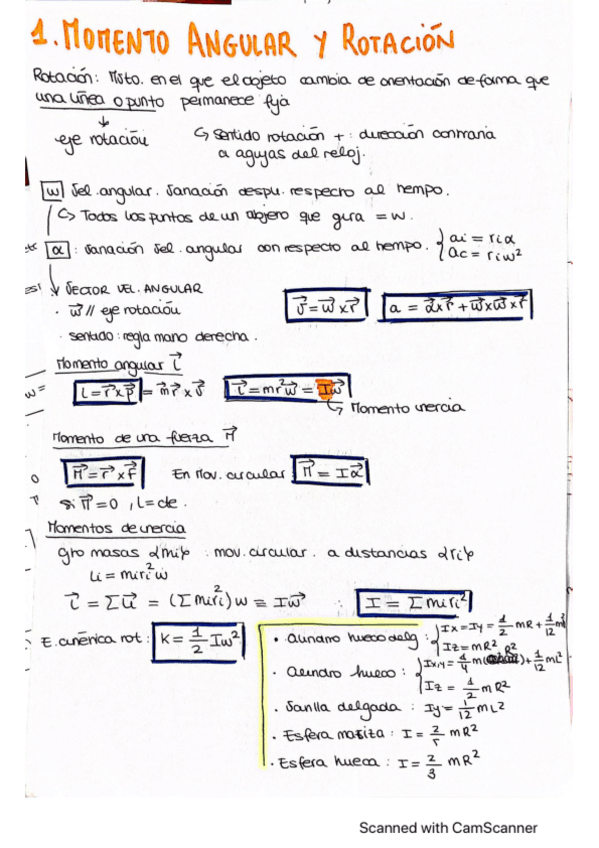 1. MOMENTO ANGULAR Y ROTACIÓN
Rotación: Mvto. en el que el objeto cambia de orientación de forma que
una línea o punto permanece fija
↓
eje rotación
↳ sentido rotación + : dirección contraria
a agujas del reloj.
w Vel. angular. Variación despl. respecto al tiempo.
↳ Todos los puntos de un objeto que gira = w.
α : variación vel. angular con respecto al tiempo. { ai = riα
ac = riw²
VECTOR VEL. ANGULAR
· w⃗ // eje rotación
v⃗ = w⃗ x r⃗
a = α⃗ x r⃗ + w⃗ x w⃗ x r⃗
· sentido: regla mano derecha.
Momento angular L⃗
w =
L = r⃗ x p⃗ = m r⃗ x v⃗
L⃗ = mr²w⃗ = Iw⃗
↳ Momento inercia
Momento de una fuerza M⃗
M⃗ = r⃗ x F⃗
En Mov. circular: M⃗ = Iα⃗
si M⃗ = 0 , L = cte.
Momentos de inercia
gro masas {mi} : mov. circular. a distancias {ri}
Li = miri²w
L⃗ = ΣL⃗i = (Σmiri²)w = Iw⃗
∴ I = Σmiri²
E. cinética rot: K = 1/2 Iw²
· Cilindro hueco delg : { Ix = Iy = 1/2 mR + 1/12 m
Iz = mR²
· Cilindro hueco : { Ix,y = 1/4 m( R² ) + 1/12 mL²
Iz = 1/2 mR²
· Varilla delgada : Iy = 1/12 mL²
· Esfera maciza : I = 2/5 mR²
· Esfera hueca : I = 2/3 mR²
Scanned with CamScanner